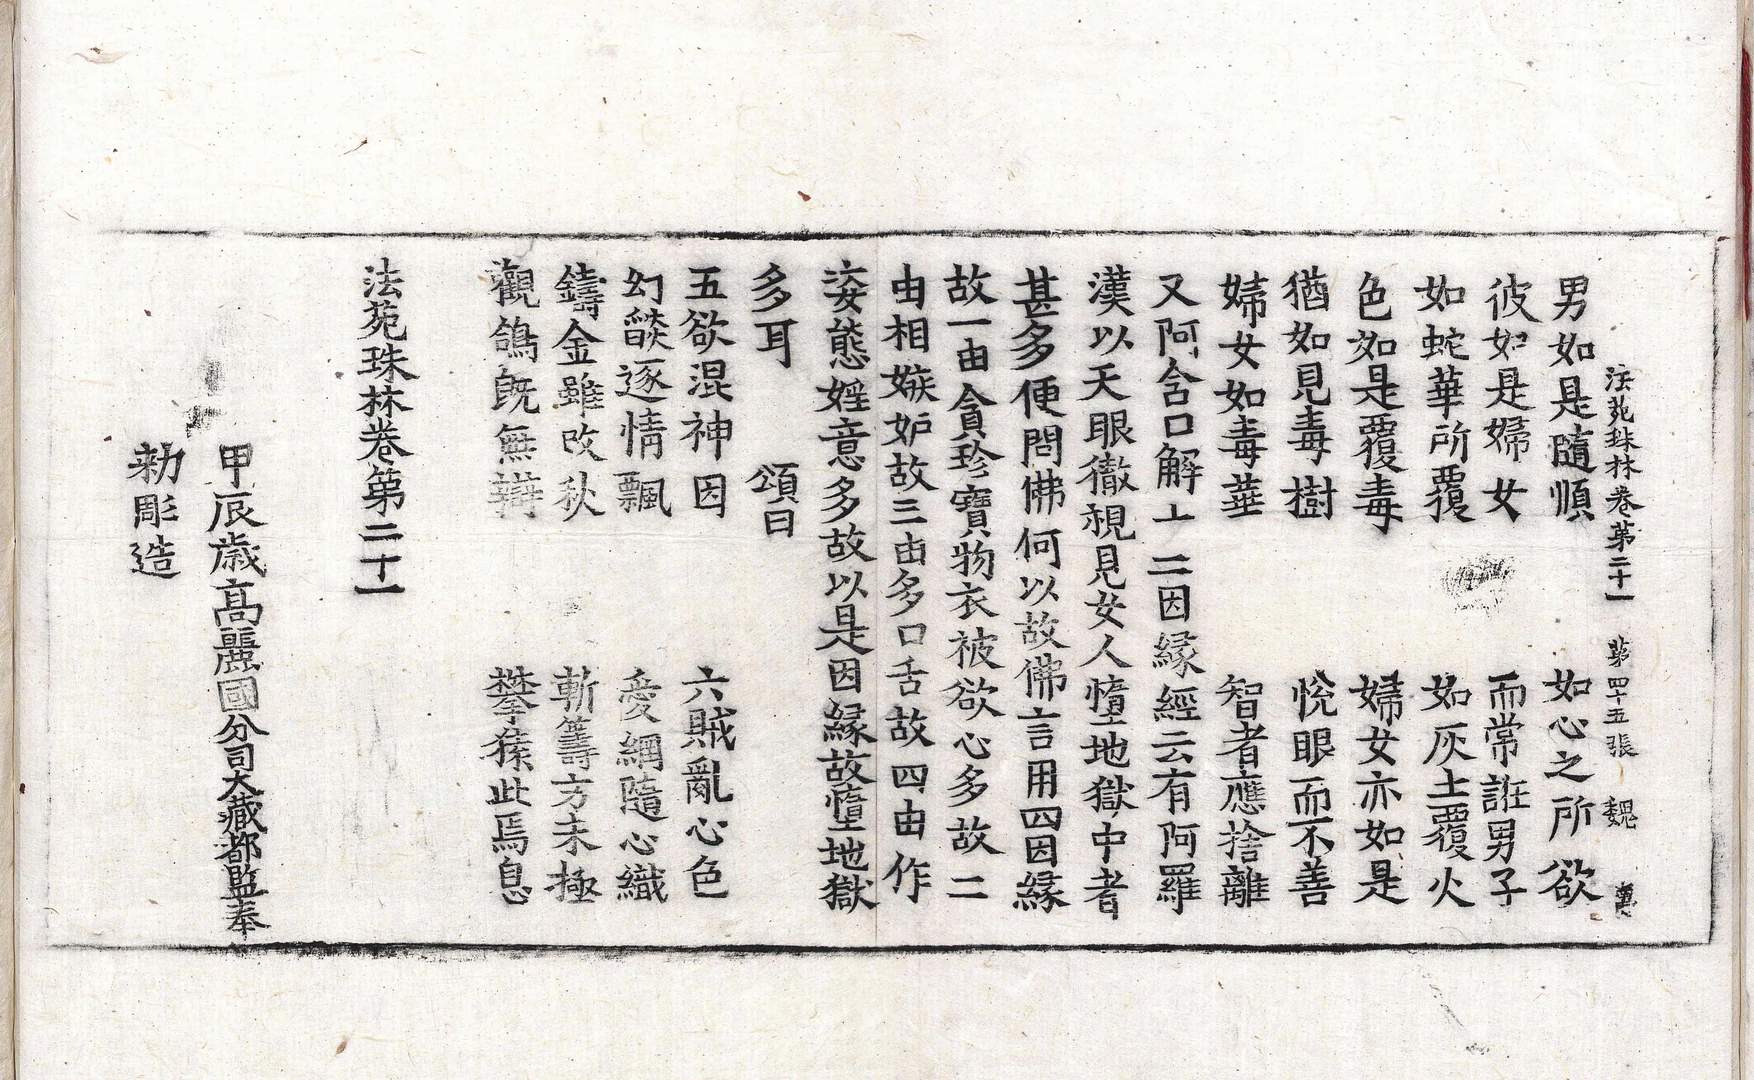 法苑珠林卷第二十一 第四十五張 魏
男如是隨順 如心之所欲
彼如是婦女 而常誑男子
如蛇華所覆 如灰土覆火
色如是覆毒 婦女亦如是
猶如見毒樹 悅眼而不善
婦女如毒華 智者應捨離
又阿含口解十二因緣經云有阿羅
漢以天眼徹視見女人墮地獄中者
甚多便問佛何以故佛言用四因緣
故一由貪珍寶物衣被欲心多故二
由相嫉妬故三由多口舌故四由作
姿態婬意多故以是因緣故墮地獄
多耳 頌曰
五欲混神因 六賊亂心色
幻燄逐情飄 愛網隨心織
鑄金雖改秋 斬籌方未極
觀鴿旣無辯 攀猨此焉息
法苑珠林卷第二十一
甲辰歲高麗國分司大藏都監奉
勅彫造